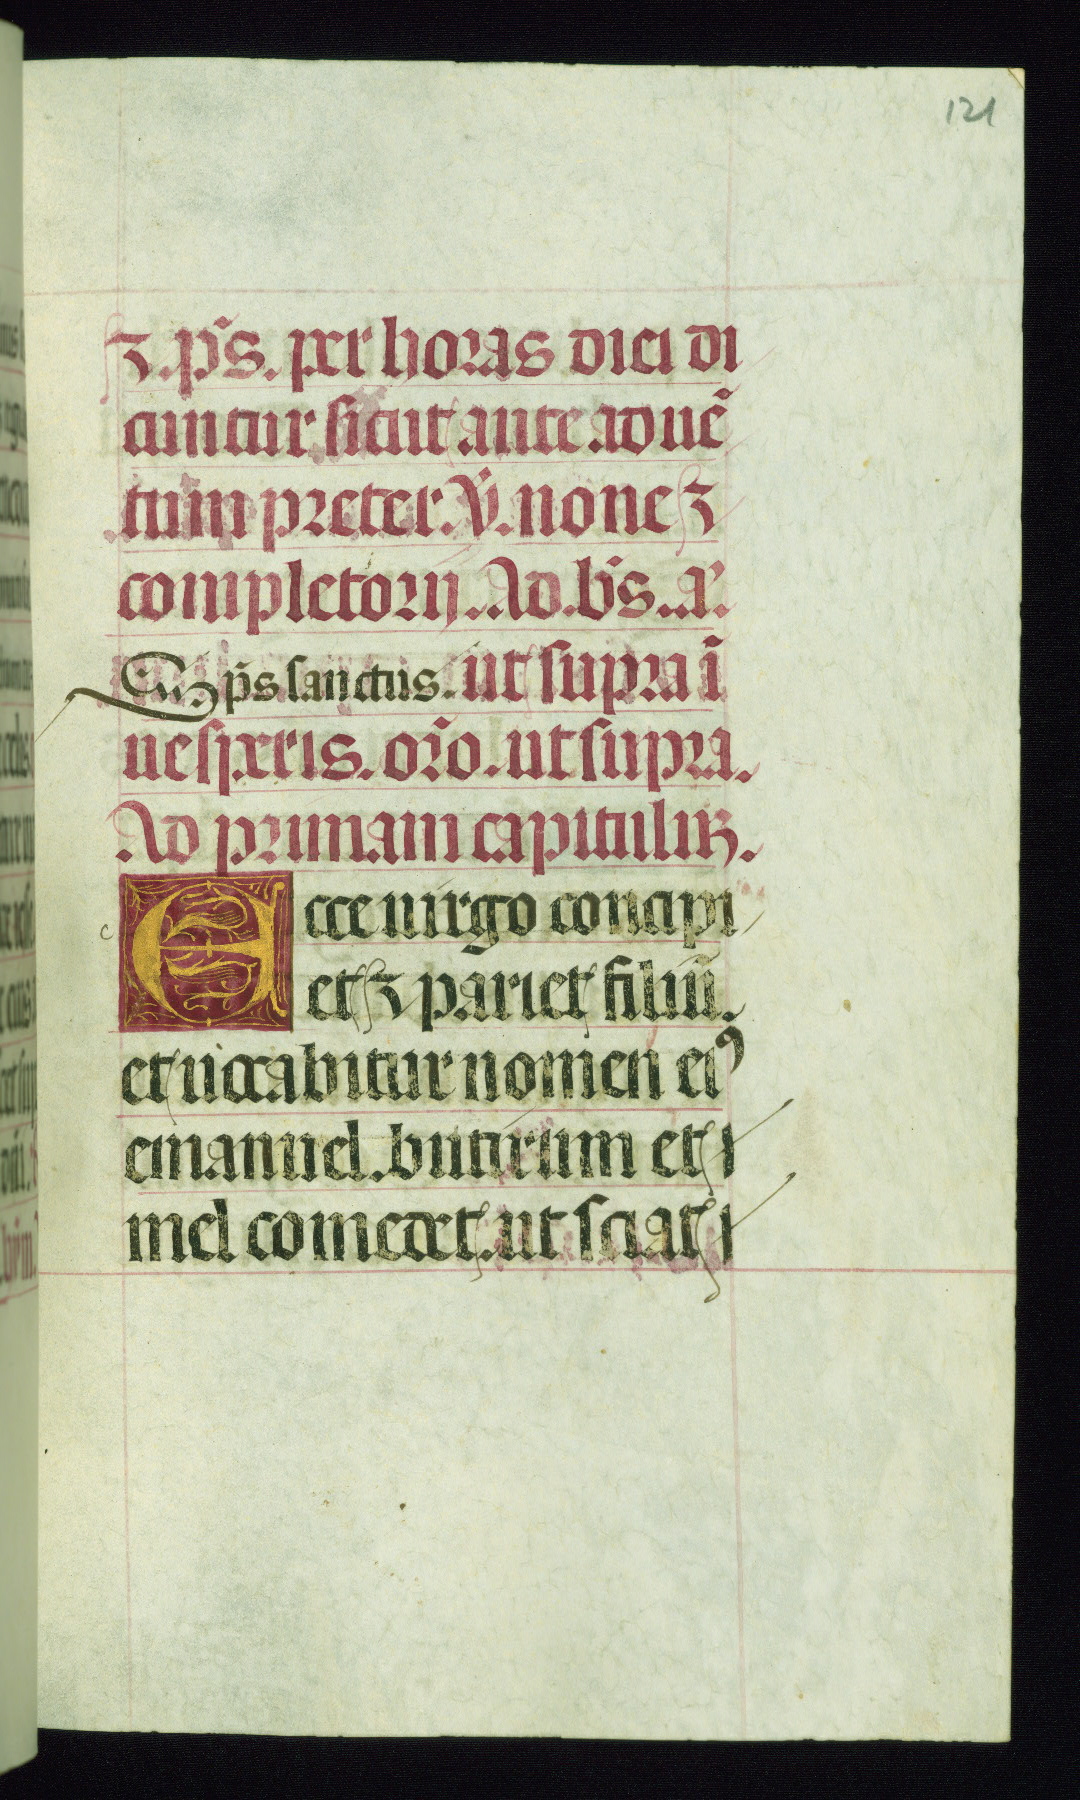 121
ꝫ. p̄s. per horas dici di
cuntur sicut ante aduē
tum preter. V̄. none ꝫ
completorij. Ad. b̄s. a͂.
Euꝫ p̄s sanctus. ut supra ī
uesperis. or̄o. ut supra.
Ad primam capituluꝫ.
Ecce uirgo concipi
et ꝫ pariet filiū.
et uocabitur nomen eiꝰ
emanuel. butirum et
mel comedet. ut sciat